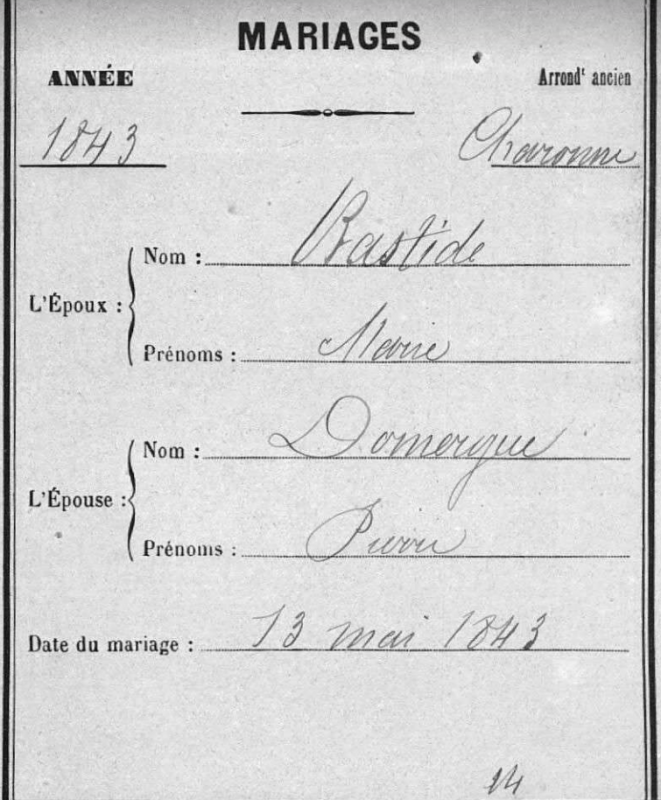 MARIAGES
ANNÉE
Arrondt ancien
1843
Charonne
L'Époux :
Nom : Bastide
Prénoms : Marie
L'Épouse :
Nom : Domergue
Prénoms : Pierre
Date du mariage : 13 mai 1843